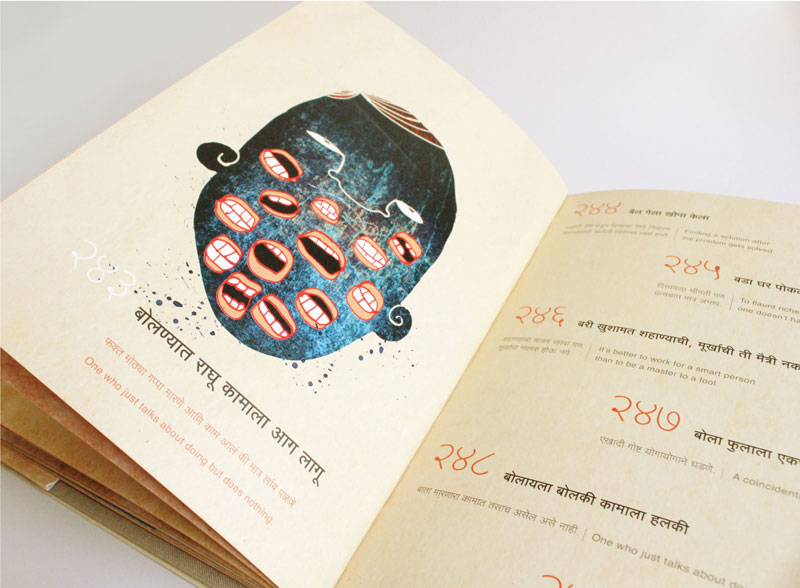 २४३
बोलण्यात राघू कामाला आग लागू
फक्त मोठ्या गप्पा मारणे आणि काम आलं की मात्र लांब पळणे
One who just talks about doing but does nothing.
२४४ बैल गेला खोपा केला
Finding a solution after
the problem gets solved.
२४५ बडा घर पोकळ
To flaunt riches
one doesn't
२४६ बरी खुशामत शहाण्याची, मूर्खाची ती मैत्री
It's better to work for a smart person
than to be a master to a fool.
२४७ बोला फुलाला
एखादी गोष्ट योगायोगाने घडणे. A
२४८ बोलायला बोलकी कामाला हलकी
बाता मारणारा कामात तसाच असेल असे नाही. One who just talks about doing but